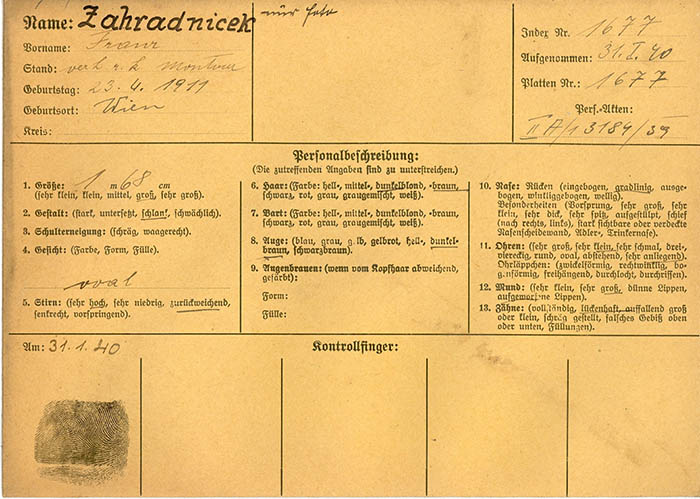 Name: Zahradnicek
nur Foto
Vorname: Franz
Stand: verh. r. k. Monteur
Geburtstag: 23. 4. 1911
Geburtsort: Wien
Kreis:
Index Nr. 1677
Aufgenommen: 31. I. 40
Platten Nr.: 1677
Pers.-Akten:
II A/1 3184/39
Personalbeschreibung:
(Die zutreffenden Angaben sind zu unterstreichen.)
1. Größe: 1 m 68 cm
(sehr klein, klein, mittel, groß, sehr groß).
2. Gestalt: (stark, untersetzt, schlank, schwächlich).
3. Schulterneigung: (schräg, waagerecht).
4. Gesicht: (Farbe, Form, Fülle).
oval
5. Stirn: (sehr hoch, sehr niedrig, zurückweichend,
senkrecht, vorspringend).
6. Haar: (Farbe: hell-, mittel-, dunkelblond, -braun,
schwarz, rot, grau, graugemischt, weiß).
7. Bart: (Farbe: hell-, mittel-, dunkelblond, -braun,
schwarz, rot, grau, graugemischt, weiß).
8. Auge: (blau, grau, g.lb, gelbrot, hell-, dunkel-
braun, schwarzbraun).
9. Augenbrauen: (wenn vom Kopfhaar abweichend,
gefärbt):
Form:
Fülle:
10. Nase: Rücken (eingebogen, gradlinig, ausge-
bogen, winkliggebogen, wellig).
Besonderheiten (Vorsprung, sehr groß, sehr
klein, sehr dick, sehr spitz, aufgestülpt, schief
(nach rechts, links), stark sichtbare oder verdeckte
Nasenscheidewand, Adler-, Trinkernase).
11. Ohren: (sehr groß, sehr klein, sehr schmal, drei-
viereckig, rund, oval, abstehend, sehr anliegend).
Ohrläppchen: (zwickelförmig, rechtwinklig, bo-
g.nförmig, freihängend, durchlocht, durchrissen).
12. Mund: (sehr klein, sehr groß, dünne Lippen,
aufgeworfne Lippen).
13. Zähne: (vollständig, lückenhaft, auffallend groß
oder klein, schräg gestellt, falsches Gebiß oben
oder unten, Füllungen).
Am: 31. 1. 40
Kontrollfinger: